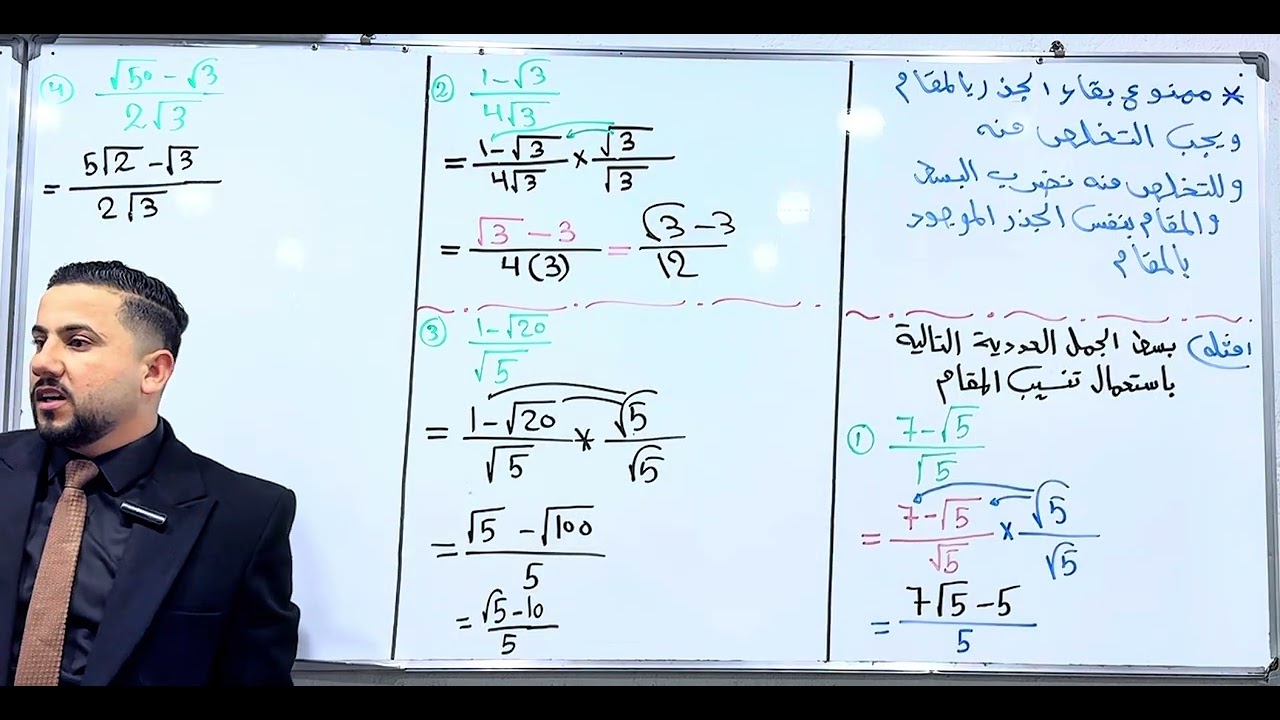 * ممنوع بقاء الجذر بالمقام
ويجب التخلص منه
وللتخلص منه نضرب البسط
والمقام بنفس الجذر الموجود
بالمقام
امثلة) بسط الجمل العددية التالية
باستعمال تنسيب المقام
① (7-√5)/√5
= (7-√5)/√5 × √5/√5
= (7√5-5)/5
② (1-√3)/4√3
= (1-√3)/4√3 × √3/√3
= (√3-3)/4(3) = (√3-3)/12
③ (1-√20)/√5
= (1-√20)/√5 * √5/√5
= (√5-√100)/5
= (√5-10)/5
④ (√50-√3)/2√3
= (5√2-√3)/2√3